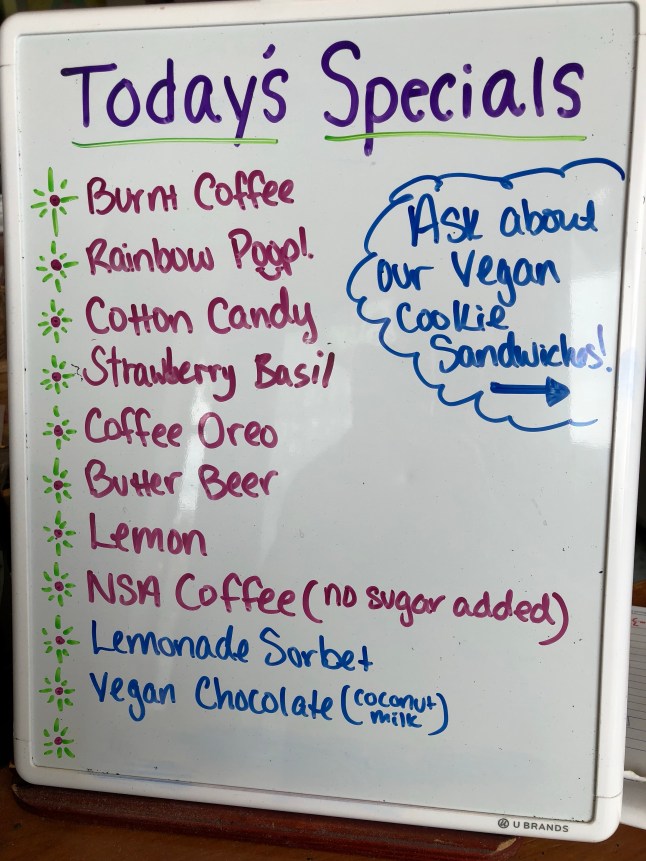 Today's Specials
Burnt Coffee
Rainbow Poop!
Cotton Candy
Strawberry Basil
Coffee Oreo
Butter Beer
Lemon
NSA Coffee (no sugar added)
Lemonade Sorbet
Vegan Chocolate (coconut
milk)
Ask about
our Vegan
Cookie
Sandwiches!
U BRANDS